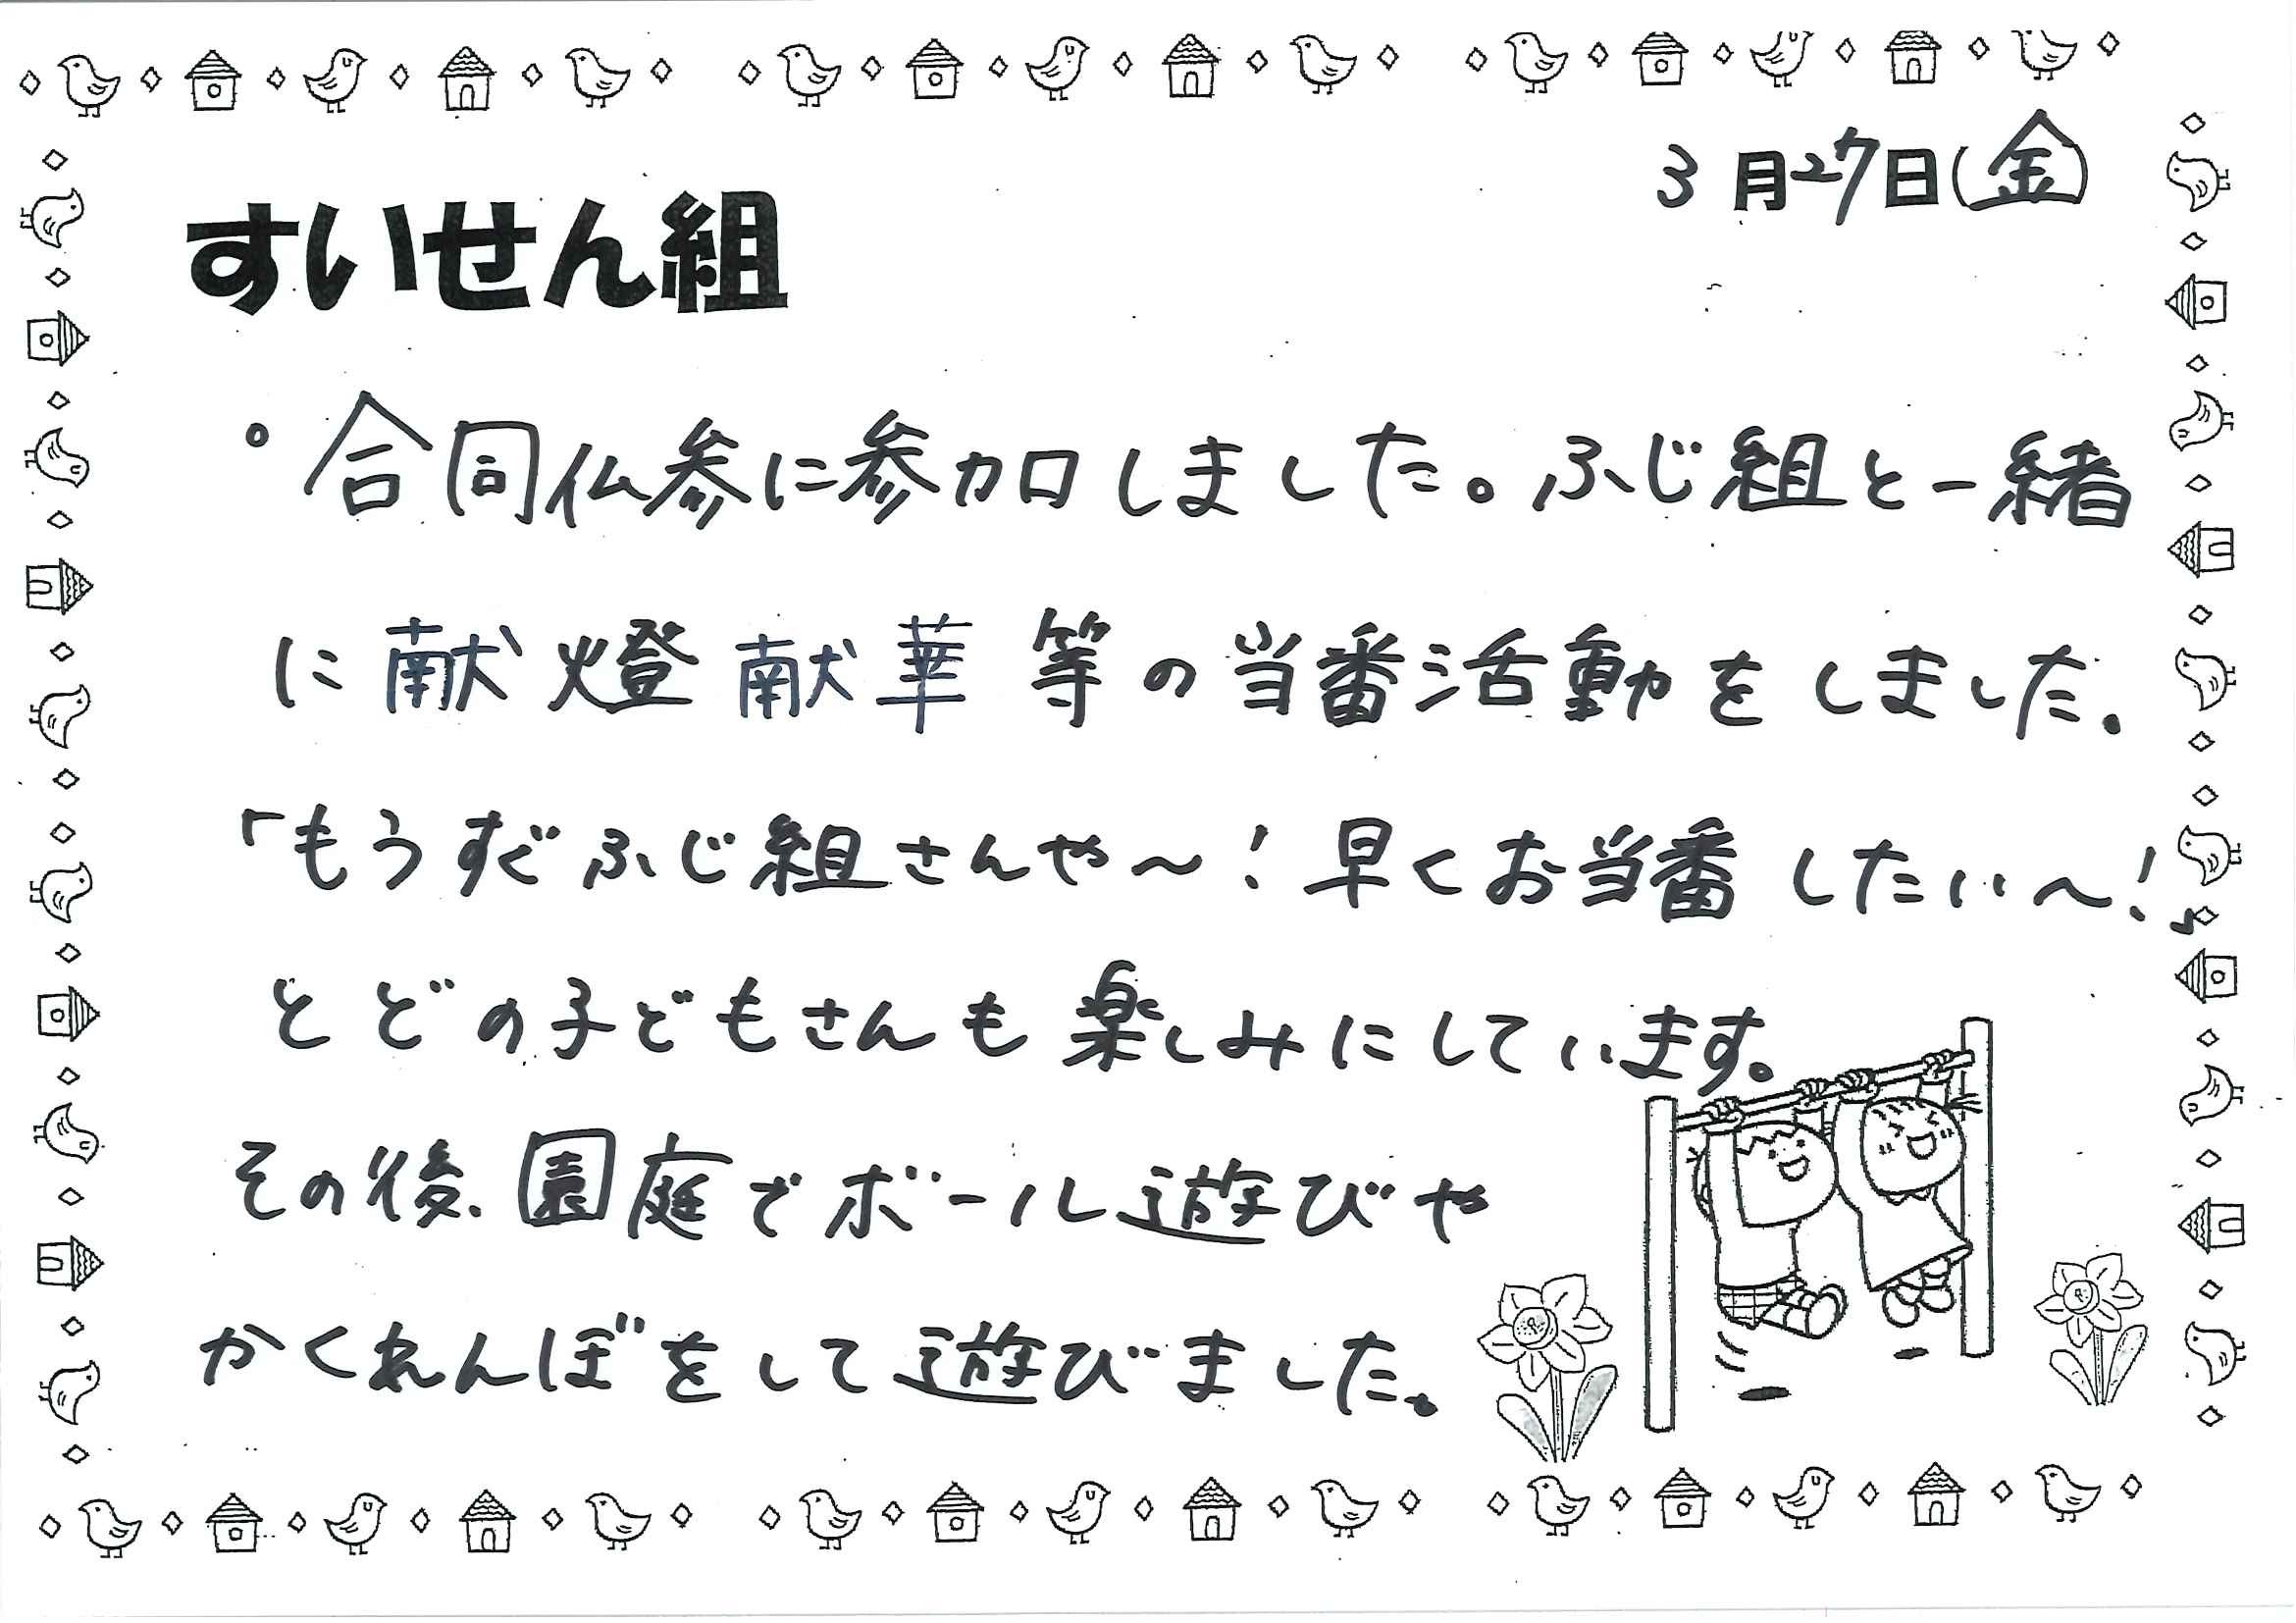 3月27日(金)
すいせん組
。合同仏参に参加しました。ふじ組と一緒
に献燈献華等の当番活動をしました。
「もうすぐふじ組さんや〜!早くお当番したい〜!」
とどの子どもさんも楽しみにしています。
その後、園庭でボール遊びや
かくれんぼをして遊びました。